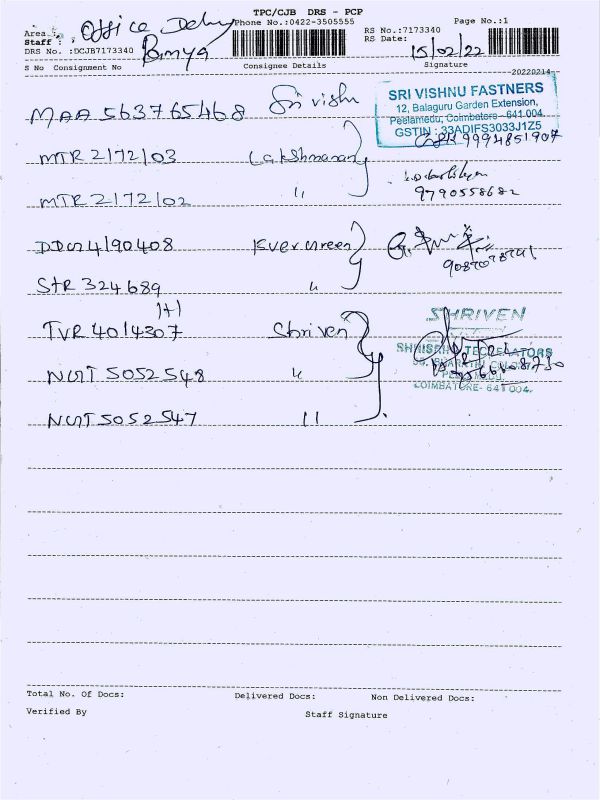 TPC/CJB DRS - PCP
Area : Office Delvy Phone No.:0422-3505555 Page No.:1
Staff : Bmya RS No.:7173340
DRS No. :DCJB7173340 RS Date: 15/02/22
S No Consignment No Consignee Details Signature
20220214
MAA 563765468 Sri vishu
SRI VISHNU FASTNERS
12, Balaguru Garden Extension,
Peelamedu, Coimbatore - 641 004.
GSTIN : 33ADIFS3033J1Z5
9994851907
MTR 2172103 Lakshmanan
MTR 2172102 "
9790558682
DDW4190408 Evergreen
STR 324689 "
1+1
TVR 4014307 Shriven
SHRIVEN
NUT 5052548 "
COIMBATORE- 641 004.
NUT 5052547 "
Total No. Of Docs: Delivered Docs: Non Delivered Docs:
Verified By Staff Signature